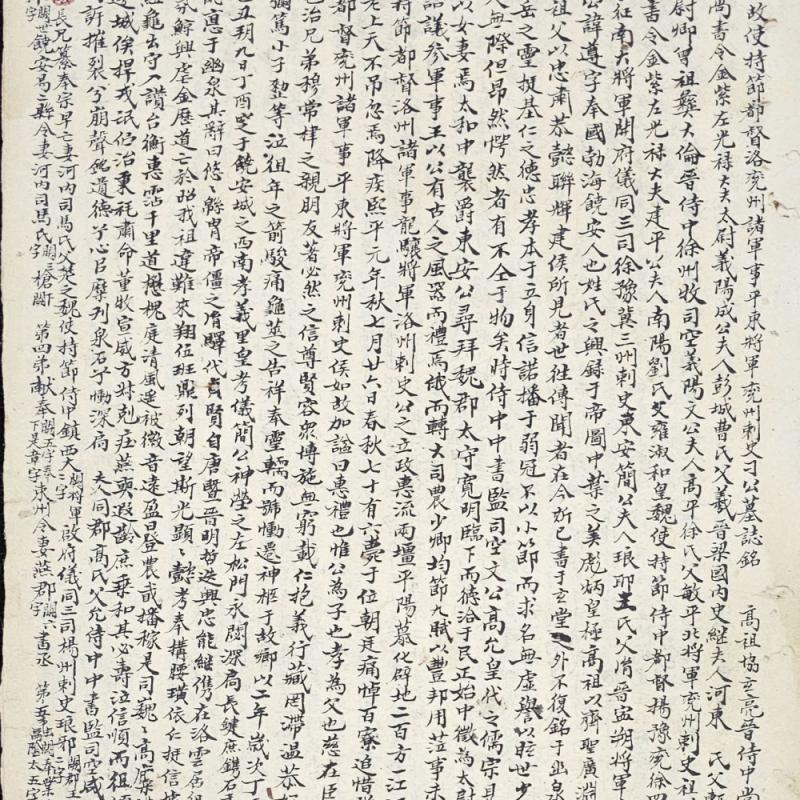 故使持節都督洛兗州諸軍事平東將軍兗州刺史刁公墓誌銘　高祖協玄亮晉侍中尚
尚書令金紫左光祿大夫太尉義陽成公夫人彭城曹氏父義晉梁國內史継夫人河東　氏父
尉卿曾祖彝大倫晉侍中徐州牧司空義陽文公夫人高平徐氏父敏平北將軍兗州刺史祖
書令金紫左光祿大夫建平公夫人南陽劉氏父雍淑和皇魏使持節侍中都督揚豫兗徐四
征南大將軍開府儀同三司徐豫冀三州刺史東安簡公夫人琅耶王氏父冑晉寍朔將軍
公諱遵字奉國勃海饒安人也姓氏之興錄于帝圖中葉之美彪炳皇極高祖以齊聖廣淵
祖父以忠肅恭懿聯輝建侯所見者世徃傳聞者在今昕已書于玄堂之外不復銘于幽泉
岳之靈挺基仁之德忠孝本于立身信諾播于弱冠不以小節而求名無虛譽以眩世少
無際但昂然愕然者有不仝于物矣時侍中中書監司空文公高允皇代之儒宗見
以女妻焉太和中襲爵東安公尋拜魏郡太守寬明臨下而德洽于民正始中徵為太尉
諮議參軍事王以公有古人之風器而禮焉俄而轉大司農少卿均節九賦以豐邦用蒞事未
持節都督洛州諸軍事龍驤將軍洛州刺史公之立政惠流兩壃平陽慕化辟地二百方一江
老上天不吊忽焉降疾熙平元年秋七月廿六日春秋七十有六薨于位朝廷痛悼百寮追惜
都督兗州諸軍事平東將軍兗州刺史侯如故加謚曰惠禮也惟公為子也孝為父也慈在臣
也治兄弟穆常棣之親朋友著必然之信尊賢容衆博施無窮載仁抱義行藏罔滯溫恭好
彌篤小子等泣徂年之箭駿痛龜筮之告祥奉靈輀而號慟遷神柩于故鄉以二年歲次丁
己丑朔九日丁酉窆于饒安城之西南孝義里皇考儀簡公神塋之左松門永閟深扃長鍵庶鐫石
惠于幽泉其辭曰悠悠緜冑帝僵之胤驛代貢賢自唐暨晉明哲迭興忠能継儁在洛雲居
鯨興虐金歷道亡於昭我祖違難來翔位班鼎列朝望斯光顯顯懿考奉搆腰璜依仁挺信
龜出守入讚台衡惠霑千里道懋槐庭清風遥被徽音遠盈曰登農戓播稼是司魏魏高廩
邊城俟捍戎氓佇治秉旄肅命董牧宣威方對剋庄燕奭遐齡庶乗和其必壽泣信順而徂
訢摧裂兮崩聲銘遺德兮心目摩列泉石兮慟深扃　夫人同郡高氏父允侍中中書監司空咸
長兄纂奉宗早亡妻河內司馬氏父楚之魏使持節侍中鎮西大闕將軍二字啟府儀同三司楊州刺史琅邪闕郡王二字
闕世饒安易二縣令妻河內司馬氏闕三字槍闕下　第四弟献奉闕五字奉下是章字東州令妻燕郡闕六字書丞　第五弟